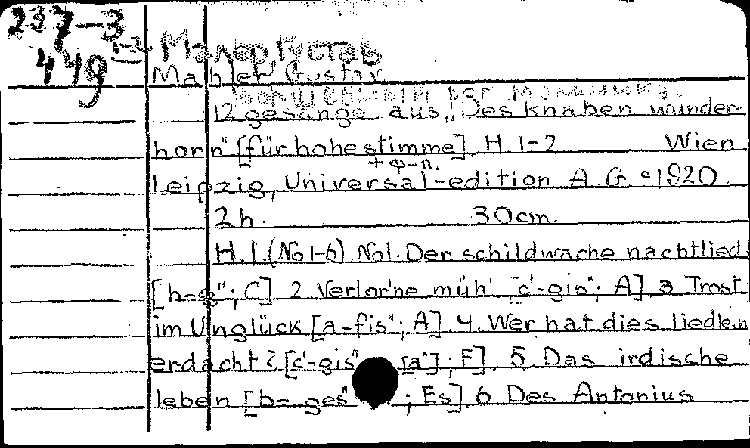 237-3
449 1-2 Малер, Густав
Mahler Gustav
12 gesänge aus „Des knaben wunder-
horn" [für hohe stimme] H. 1-2 Wien
+ ф-п.
Leipzig, Universal-edition A. G. c 1920.
2 h. 30 cm.
H. 1 (No 1-6) No1. Der schildwache nachtlied
[h-g"; C] 2 Verlor'ne müh' [c'-gis"; A] 3 Trost
im Unglück [a-fis"; A] 4. Wer hat dies liedlein
erdacht? [c'-gis" [a"]; F]. 5. Das irdische
leben [b-ges" ; Es] 6 Des Antonius